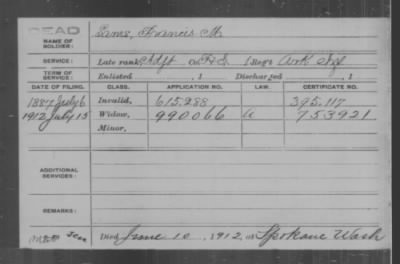 DEAD
NAME OF SOLDIER: Sams, Francis M.
SERVICE: Late rank Adjt, Co. F&S, 1 Reg't Ark Inf
TERM OF SERVICE: Enlisted , 1 Discharged , 1
DATE OF FILING. CLASS. APPLICATION NO. LAW. CERTIFICATE NO.
1887 July 6 Invalid, 615.288 395.117
1912 July 15 Widow, 990066 a 753921
Minor,
ADDITIONAL SERVICES:
REMARKS:
Died June 10, 1912, at Spokane Wash